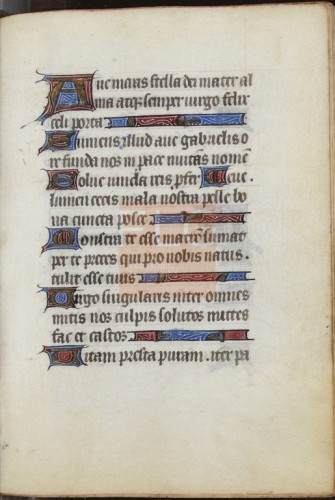 Aue maris stella dei mater al
ma atq; semper uirgo felix
celi porta
Sumens illud aue gabrielis o
re funda nos in pace mutās nomē
Solue uincla reis pfer
lumen cecis mala nostra pelle bo
na cuncta posce
Monstra te esse matrē sumat
per te preces qui pro nobis natus
tulit esse tuus
Virgo singularis inter omnes
mitis nos culpis solutos mittes
fac et castos
Vitam presta puram . iter pa